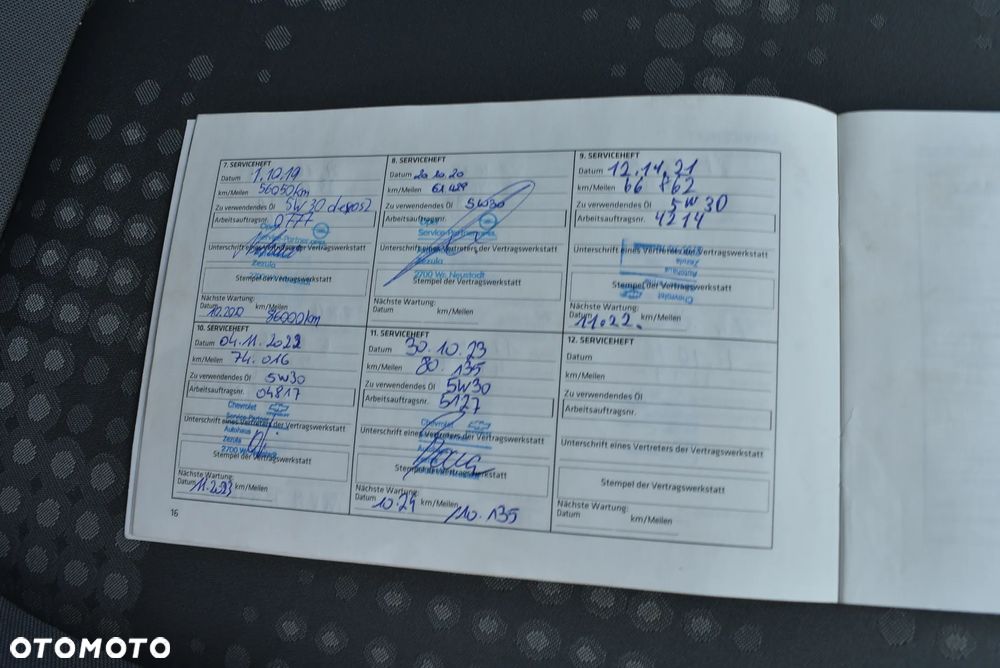 7. SERVICEHEFT
Datum 1.10.19
km/Meilen 56050km
Zu verwendendes Öl 5W30 dexos2
Arbeitsauftragsnr. 0777
Opel
Service-Partner
Unterschrift eines Vertreters der Vertragswerkstatt
Zezula
Stempel der Vertragswerkstatt
Nächste Wartung:
Datum 10.2020 km/Meilen 86000km
8. SERVICEHEFT
Datum 20.10.20
km/Meilen 61.489
Zu verwendendes Öl 5W30
Arbeitsauftragsnr.
Opel
Service-Partner
Unterschrift eines Vertreters der Vertragswerkstatt
Zezula
2700 Wr. Neustadt
Stempel der Vertragswerkstatt
Nächste Wartung:
Datum km/Meilen
9. SERVICEHEFT
Datum 12.14.21
km/Meilen 66 862
Zu verwendendes Öl 5W30
Arbeitsauftragsnr. 4214
Unterschrift eines Vertreters der Vertragswerkstatt
Zezula
Autohaus
Stempel der Vertragswerkstatt
Chevrolet
Nächste Wartung:
Datum 11.22. km/Meilen
10. SERVICEHEFT
Datum 04.11.2022
km/Meilen 74.016
Zu verwendendes Öl 5W30
Arbeitsauftragsnr. 04817
Chevrolet
Service-Partner
Unterschrift eines Vertreters der Vertragswerkstatt
Autohaus
Zezula
2700
Stempel der Vertragswerkstatt
Nächste Wartung:
Datum 11.2023 km/Meilen
11. SERVICEHEFT
Datum 30.10.23
km/Meilen 80.135
Zu verwendendes Öl 5W30
Arbeitsauftragsnr. 5127
Chevrolet
Unterschrift eines Vertreters der Vertragswerkstatt
Stempel der Vertragswerkstatt
Nächste Wartung:
Datum 10.24 km/Meilen 110.135
12. SERVICEHEFT
Datum
km/Meilen
Zu verwendendes Öl
Arbeitsauftragsnr.
Unterschrift eines Vertreters der Vertragswerkstatt
Stempel der Vertragswerkstatt
Nächste Wartung:
Datum km/Meilen
16
OTOMOTO